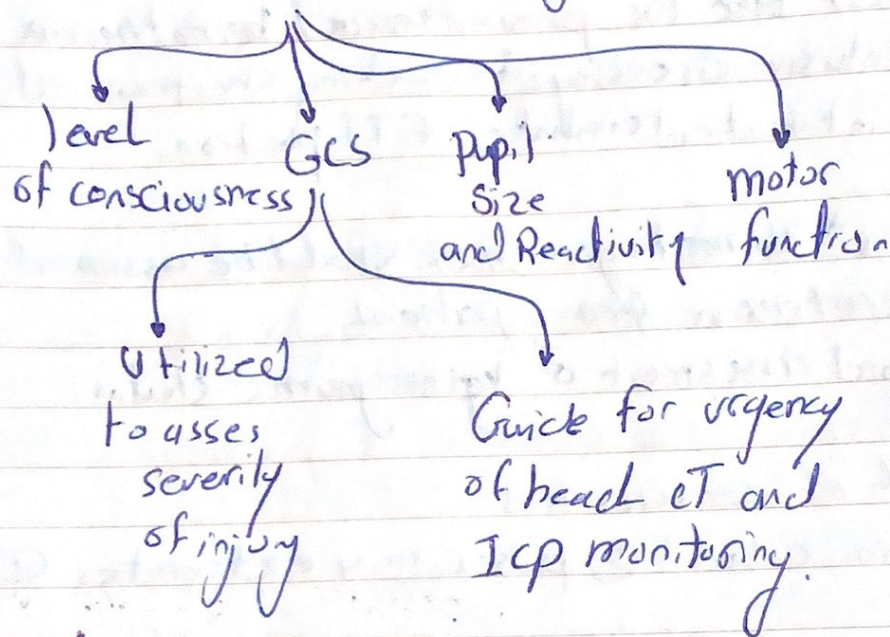 level
of consciousness
GCS
Pupil
Size
and Reactivity
motor
function
Utilized
to asses
severity
of injury
Guide for urgency
of head CT and
ICP monitoring.